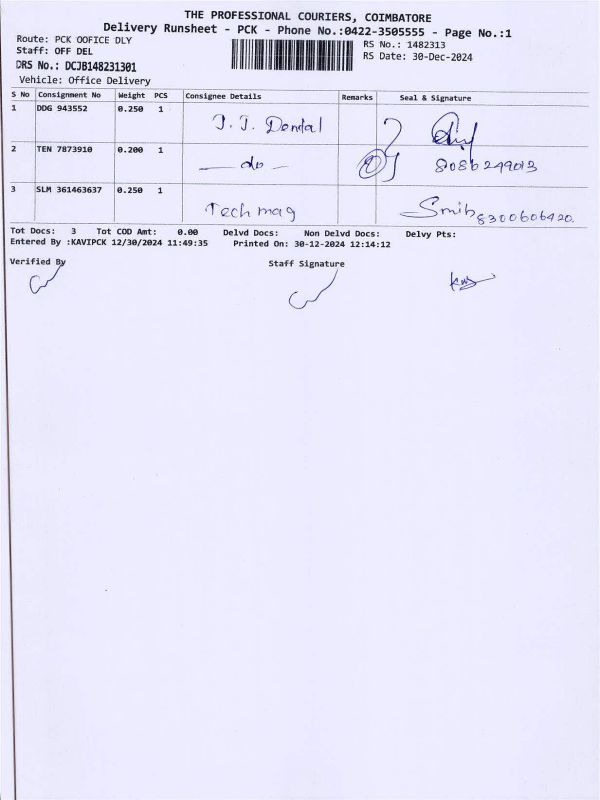 THE PROFESSIONAL COURIERS, COIMBATORE
Delivery Runsheet - PCK - Phone No.:0422-3505555 - Page No.:1
Route: PCK OOFICE DLY
RS No.: 1482313
Staff: OFF DEL
RS Date: 30-Dec-2024
DRS No.: DCJB148231301
Vehicle: Office Delivery
S No Consignment No Weight PCS Consignee Details Remarks Seal & Signature
1 DDG 943552 0.250 1 J. J. Dental
2 TEN 7873910 0.200 1 — do — 8086249013
3 SLM 361463637 0.250 1 Techmag Smib 8300606420
Tot Docs: 3 Tot COD Amt: 0.00 Delvd Docs: Non Delvd Docs: Delvy Pts:
Entered By :KAVIPCK 12/30/2024 11:49:35 Printed On: 30-12-2024 12:14:12
Verified By Staff Signature